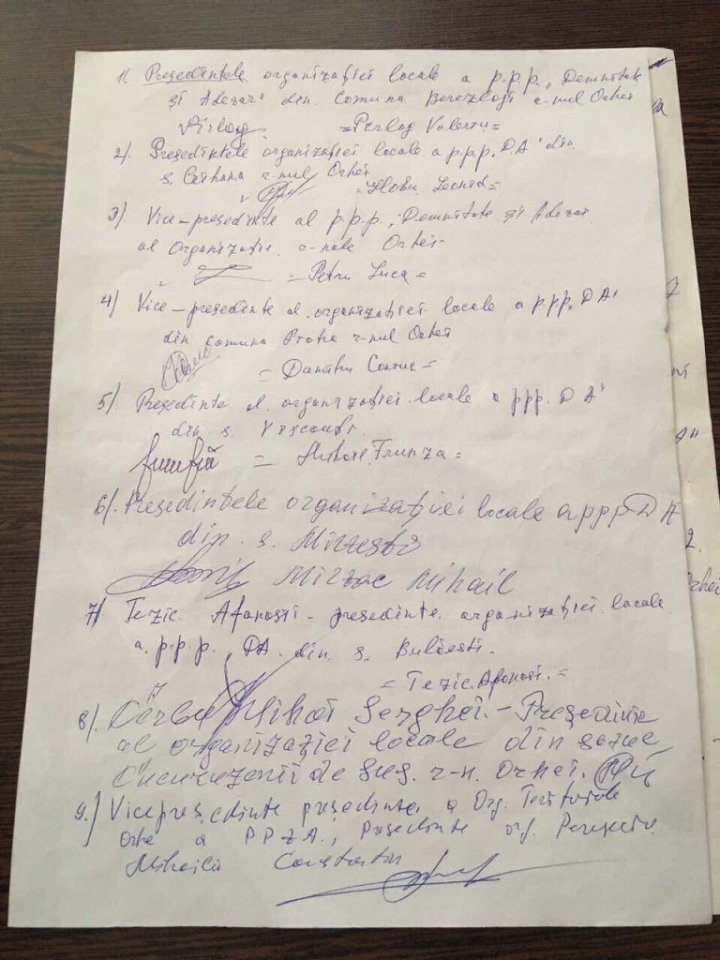 1. Președintele organizației locale a p.p.p. „Demnitate
și Adevăr" din Comuna Berezlogi r-nul Orhei
=Perlog Valeriu=
2/ Președintele organizației locale a p.p.p. „DA" din
s. r-nul Orhei
= Leonid=
3/ Vice-președinte al p.p.p. „Demnitate și Adevăr
al Organizație r-nale Orhei-
= Petru Luca =
4/ Vice-președinte al organizației locale a ppp. DA"
din comuna r-nul Orhei
= Dumitru
5/ Președinte al organizației locale a ppp. DA"
din s.
= Frunza =
6/. Președintele organizației locale a ppp DA
din s. Mirzești
Mirzac Mihail
7/ Tezic Afanasi - președinte organizației locale
a. p.p.p. DA din s. Bulăești.
= Tezic Afanasi. =
8/. Mihai Serghei. - Președinte
al organizației locale din
de Sus. r-n. Orhei.
9.) Vicepreședinte președinte a Org. Teritoriale
a PPDA., Președinte org.
Constantin